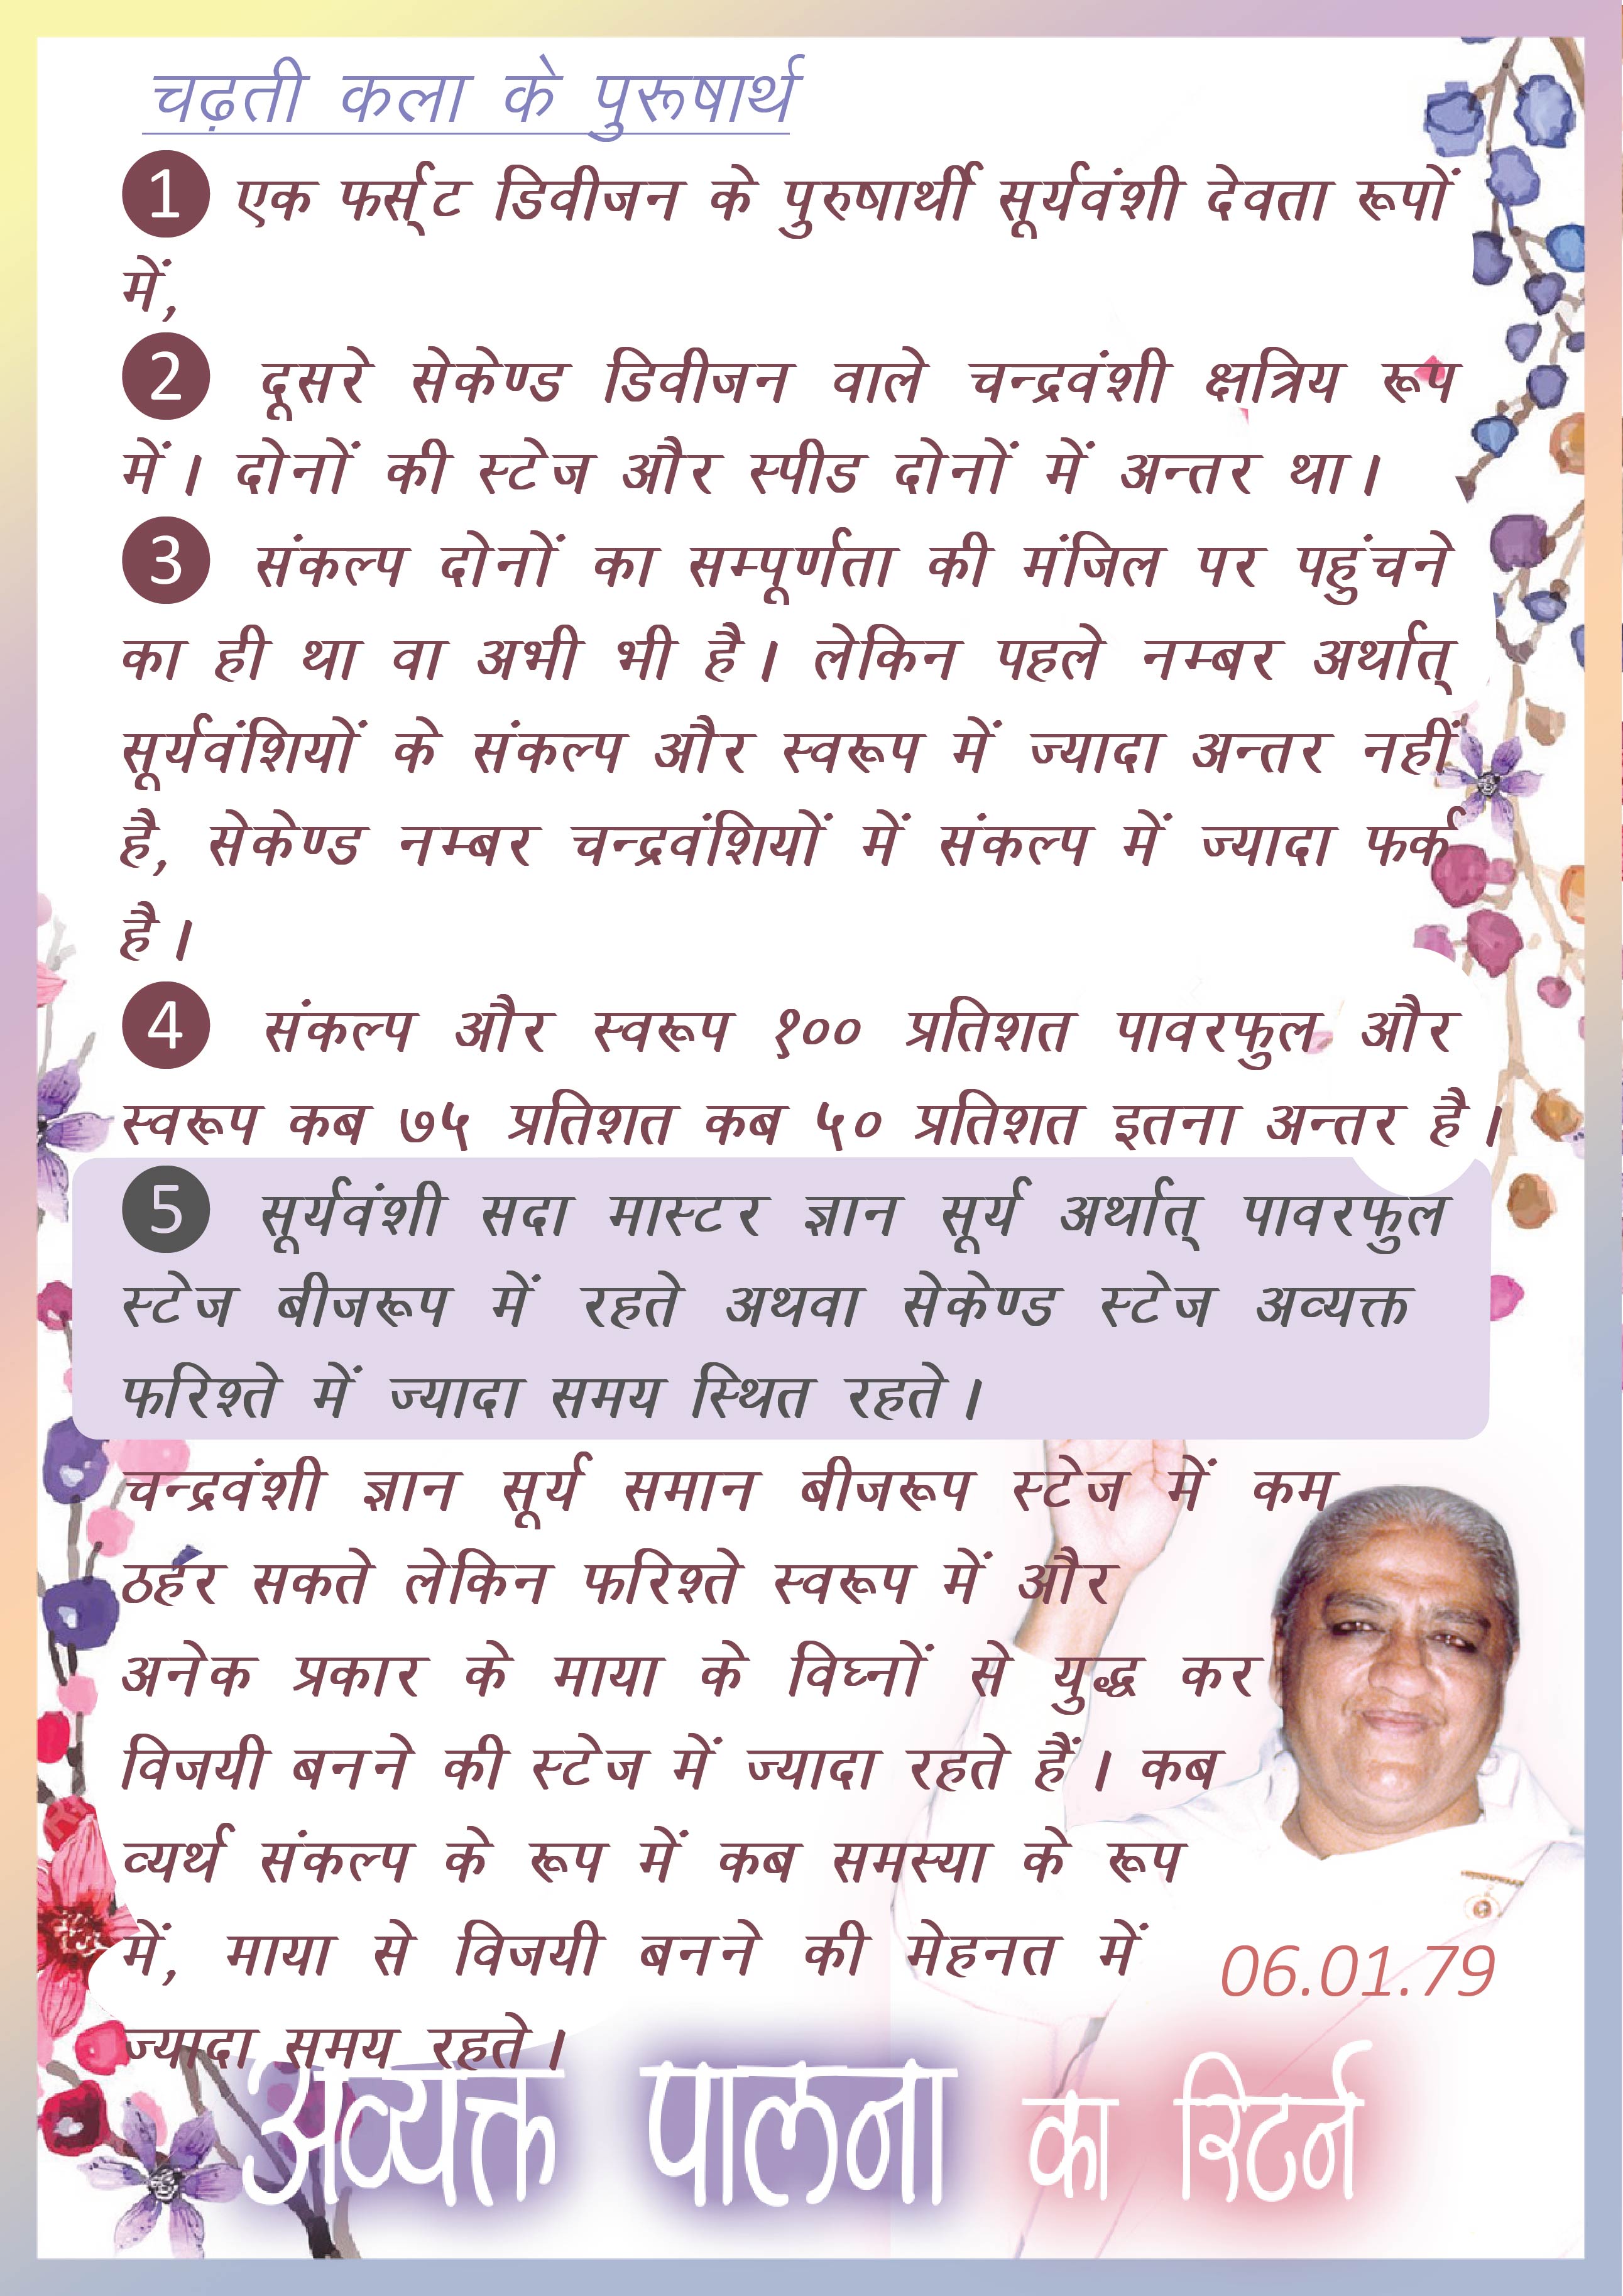 चढ़ती कला के पुरूषार्थ
1 एक फर्स्ट डिवीजन के पुरुषार्थी सूर्यवंशी देवता रूपों
में,
2 दूसरे सेकेण्ड डिवीजन वाले चन्द्रवंशी क्षत्रिय रूप
में। दोनों की स्टेज और स्पीड दोनों में अन्तर था।
3 संकल्प दोनों का सम्पूर्णता की मंजिल पर पहुंचने
का ही था वा अभी भी है। लेकिन पहले नम्बर अर्थात्
सूर्यवंशियों के संकल्प और स्वरूप में ज्यादा अन्तर नहीं
है, सेकेण्ड नम्बर चन्द्रवंशियों में संकल्प में ज्यादा फर्क
है।
4 संकल्प और स्वरूप १०० प्रतिशत पावरफुल और
स्वरूप कब ७५ प्रतिशत कब ५० प्रतिशत इतना अन्तर है।
5 सूर्यवंशी सदा मास्टर ज्ञान सूर्य अर्थात् पावरफुल
स्टेज बीजरूप में रहते अथवा सेकेण्ड स्टेज अव्यक्त
फरिश्ते में ज्यादा समय स्थित रहते।
चन्द्रवंशी ज्ञान सूर्य समान बीजरूप स्टेज में कम
ठहर सकते लेकिन फरिश्ते स्वरूप में और
अनेक प्रकार के माया के विघ्नों से युद्ध कर
विजयी बनने की स्टेज में ज्यादा रहते हैं। कब
व्यर्थ संकल्प के रूप में कब समस्या के रूप
में, माया से विजयी बनने की मेहनत में
ज्यादा समय रहते।
06.01.79
अव्यक्त पालना का रिटर्न